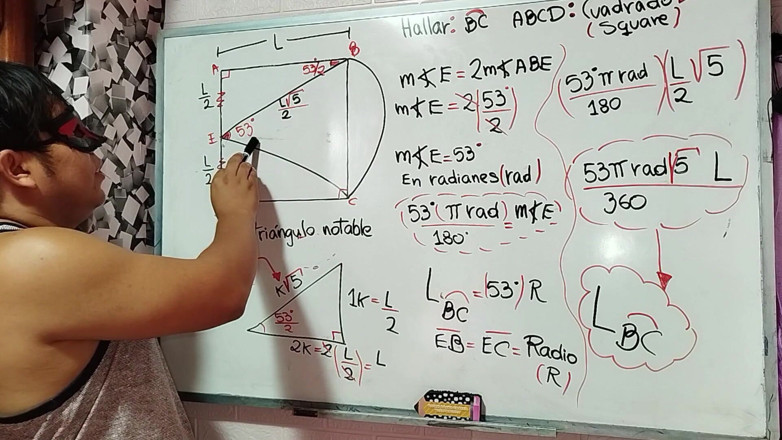 Hallar: BC ABCD: Cuadrado
(Square)
L
A
B
53°/2
L/2
L√5/2
E
53°
L/2
C
triángulo notable
K√5
53°/2
1K = L/2
2K = 2(L/2) = L
m∡E = 2m∡ABE
m∡E = 2(53°/2)
m∡E = 53°
En radianes (rad)
53°(π rad)/180° = m∡E
L BC = (53°) R
EB = EC = Radio
(R)
(53°π rad/180)(L/2 √5)
53π rad √5 L/360
L BC